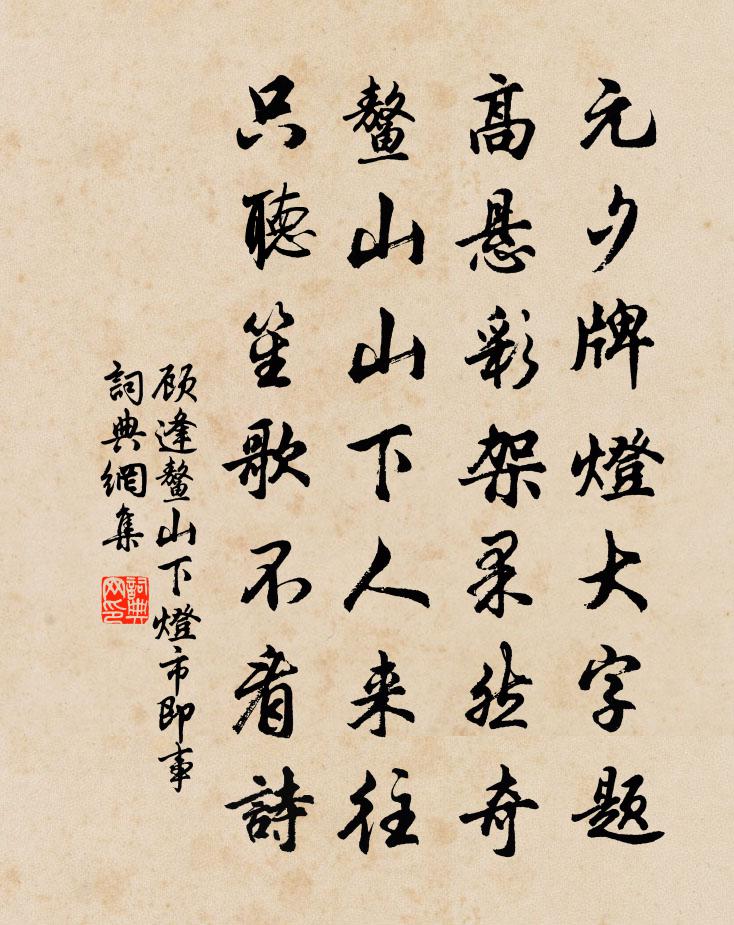 元夕牌燈大字題
高懸彩架果然奇
鼇山山下人来往
只聽笙歌不看詩
顾逢鼇山下燈市即事
詞典網集
詞典
网印